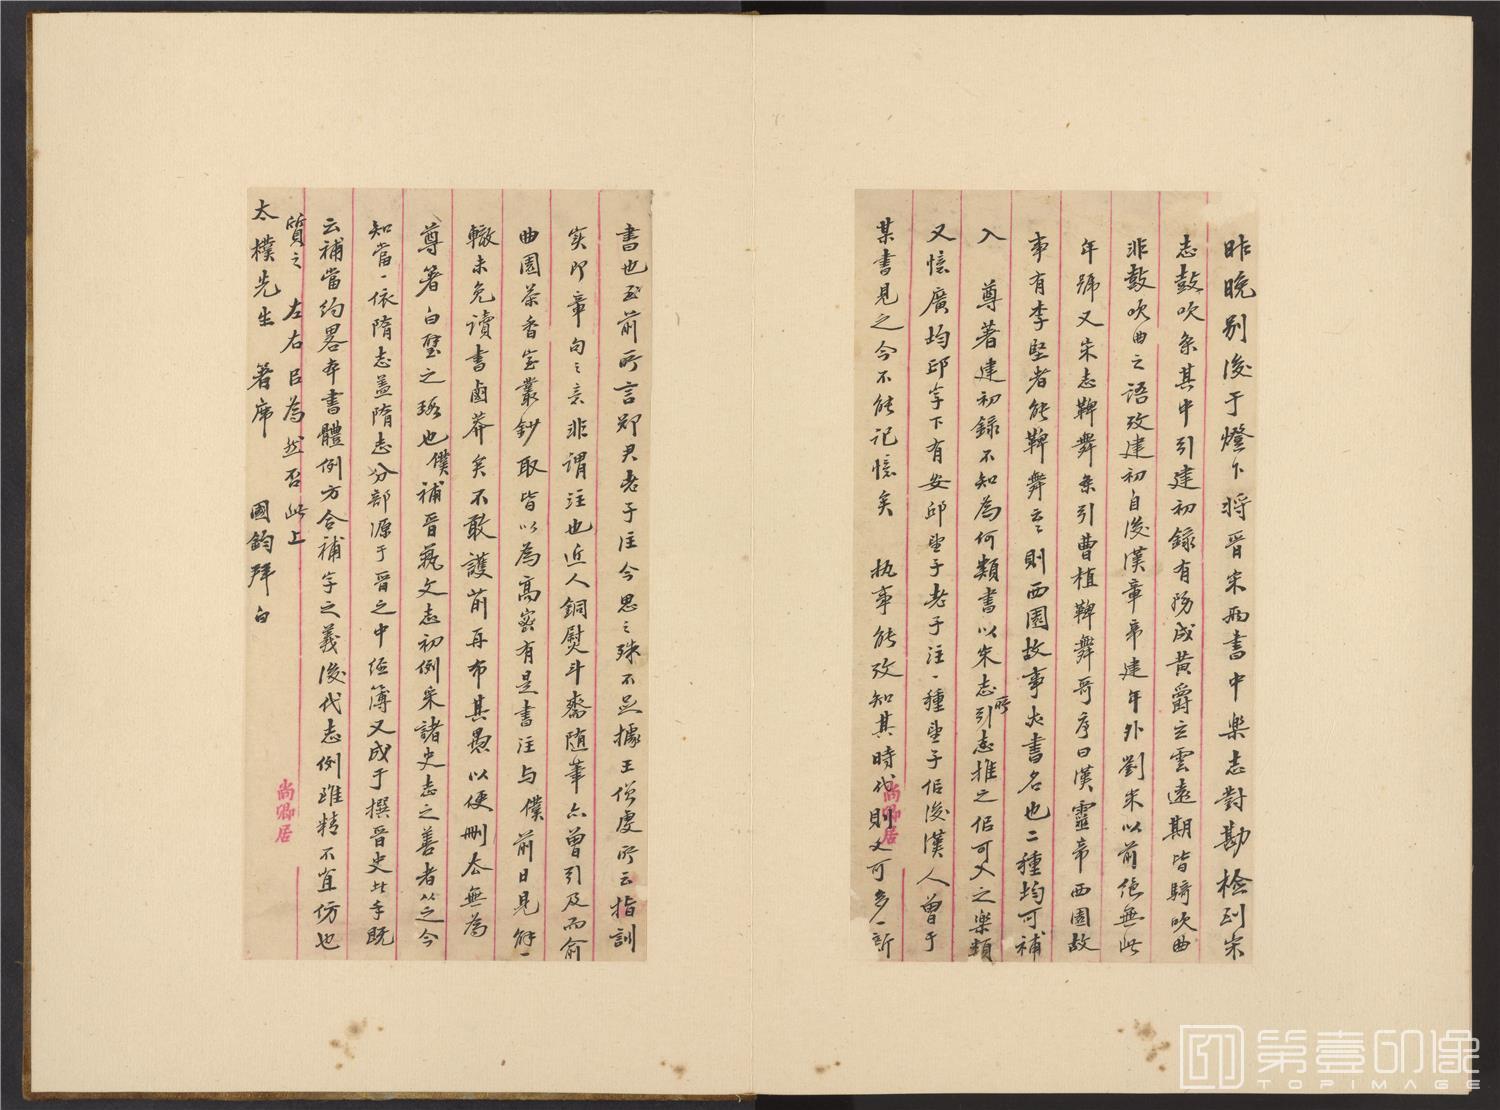 昨晚别後于燈下將晉宋兩書中樂志對勘檢到宋
志鼓吹条其中引建初錄有務成黄爵玄雲遠期皆騎吹曲
非鼓吹曲之語攷建初自後漢章帝建年外劉宋以前絕無此
年號又宋志鞞舞条引曹植鞞舞哥序曰漢靈帝西園故
事有李堅者能鞞舞云云則西園故事大書名也二種均可補
入 尊著建初錄不知為何類書以宋志引志推之但可入之樂類
所
又憶廣均邱字下有安邱望子老子注一種望子但後漢人曾于
某書見之今不能記憶矣 执事能攷知其時代則又可多一新
尚卿居
書也至前所言郑君老子注今思之殊不足據王僧虔所云指訓
实即章句之意非謂注也近人銅熨斗齋随筆亦曾引及而俞
曲園茶香室叢鈔取皆以為高密有是書注与僕前日見解一
轍未免讀書鹵莽矣不敢護前再布其愚以便刪去無為
尊著白璧之瑕也僕補晉藝文志初例采諸史志之善者從之今
知當一依隋志盖隋志分部源于晉之中经簿又成于撰晉史此手既
云補當约畧本書體例方合補字之義後代志例雖精不宜仿也
質之 左右以為然否此上
太樸先生 著席 國鈞拜白
尚卿居
第壹印像
TOPIMAGE